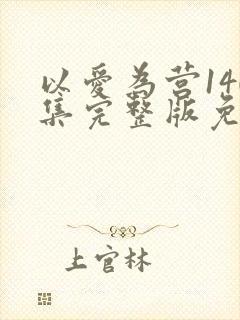 以爱为营14
集完整版免
上官林